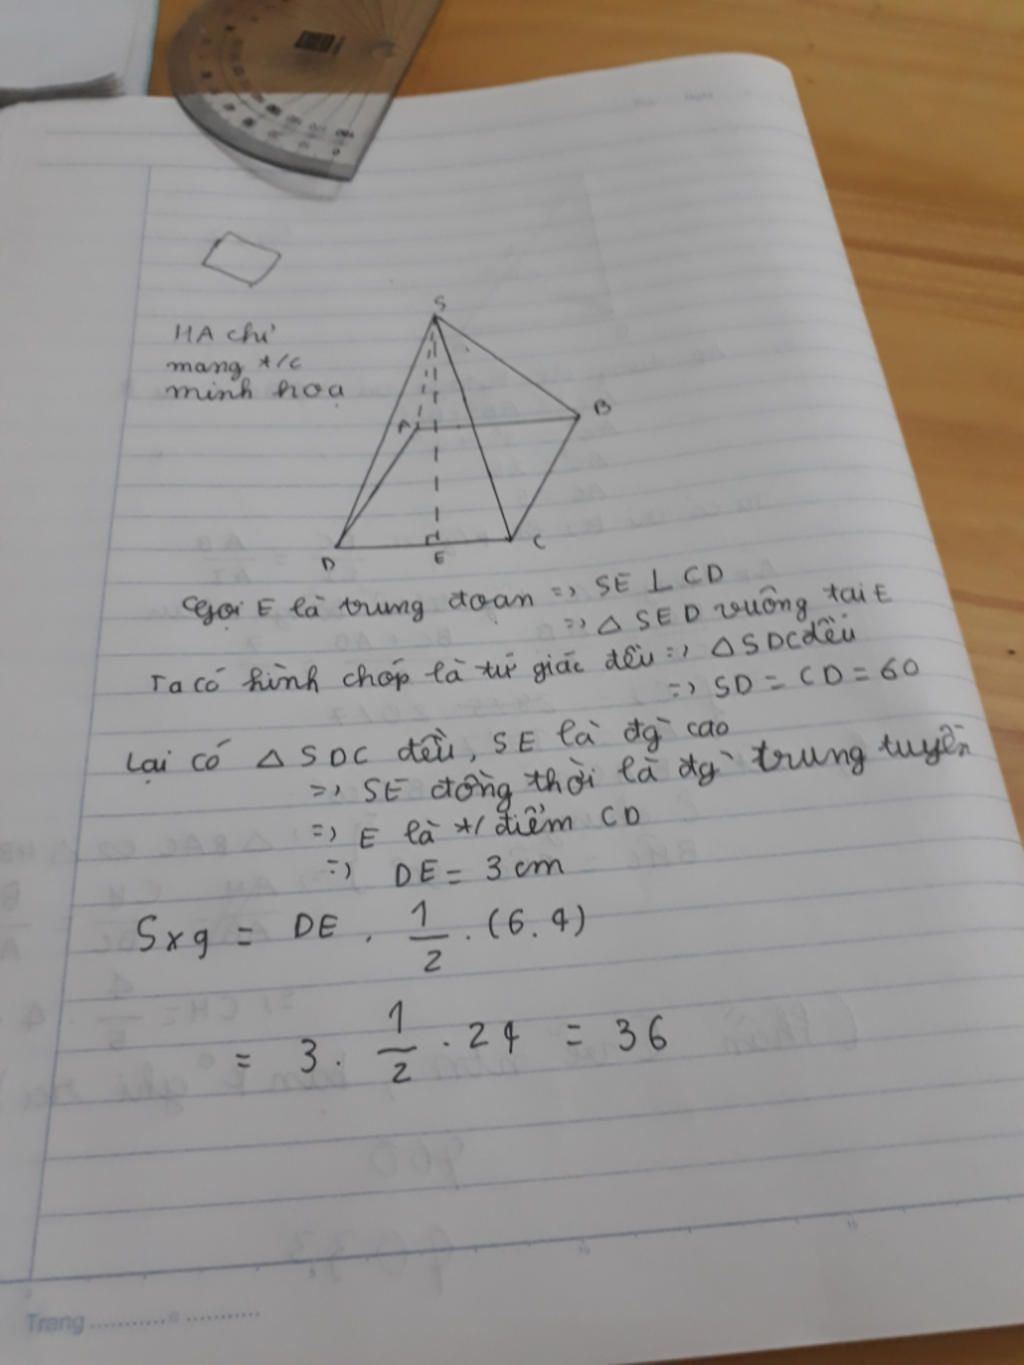 HA chỉ
mang t/c
minh họa
S
A
B
D
E
C
Gọi E là trung đoạn => SE ⊥ CD
=> △ SED vuông tại E
Ta có hình chóp là tứ giác đều => △ SDC đều
=> SD = CD = 60
Lại có △ SDC đều, SE là đg` cao
=> SE đồng thời là đg` trung tuyến
=> E là t/điểm CD
=> DE = 3 cm
Sxq = DE . 1/2 . (6.4)
= 3 . 1/2 . 24 = 36
Trang